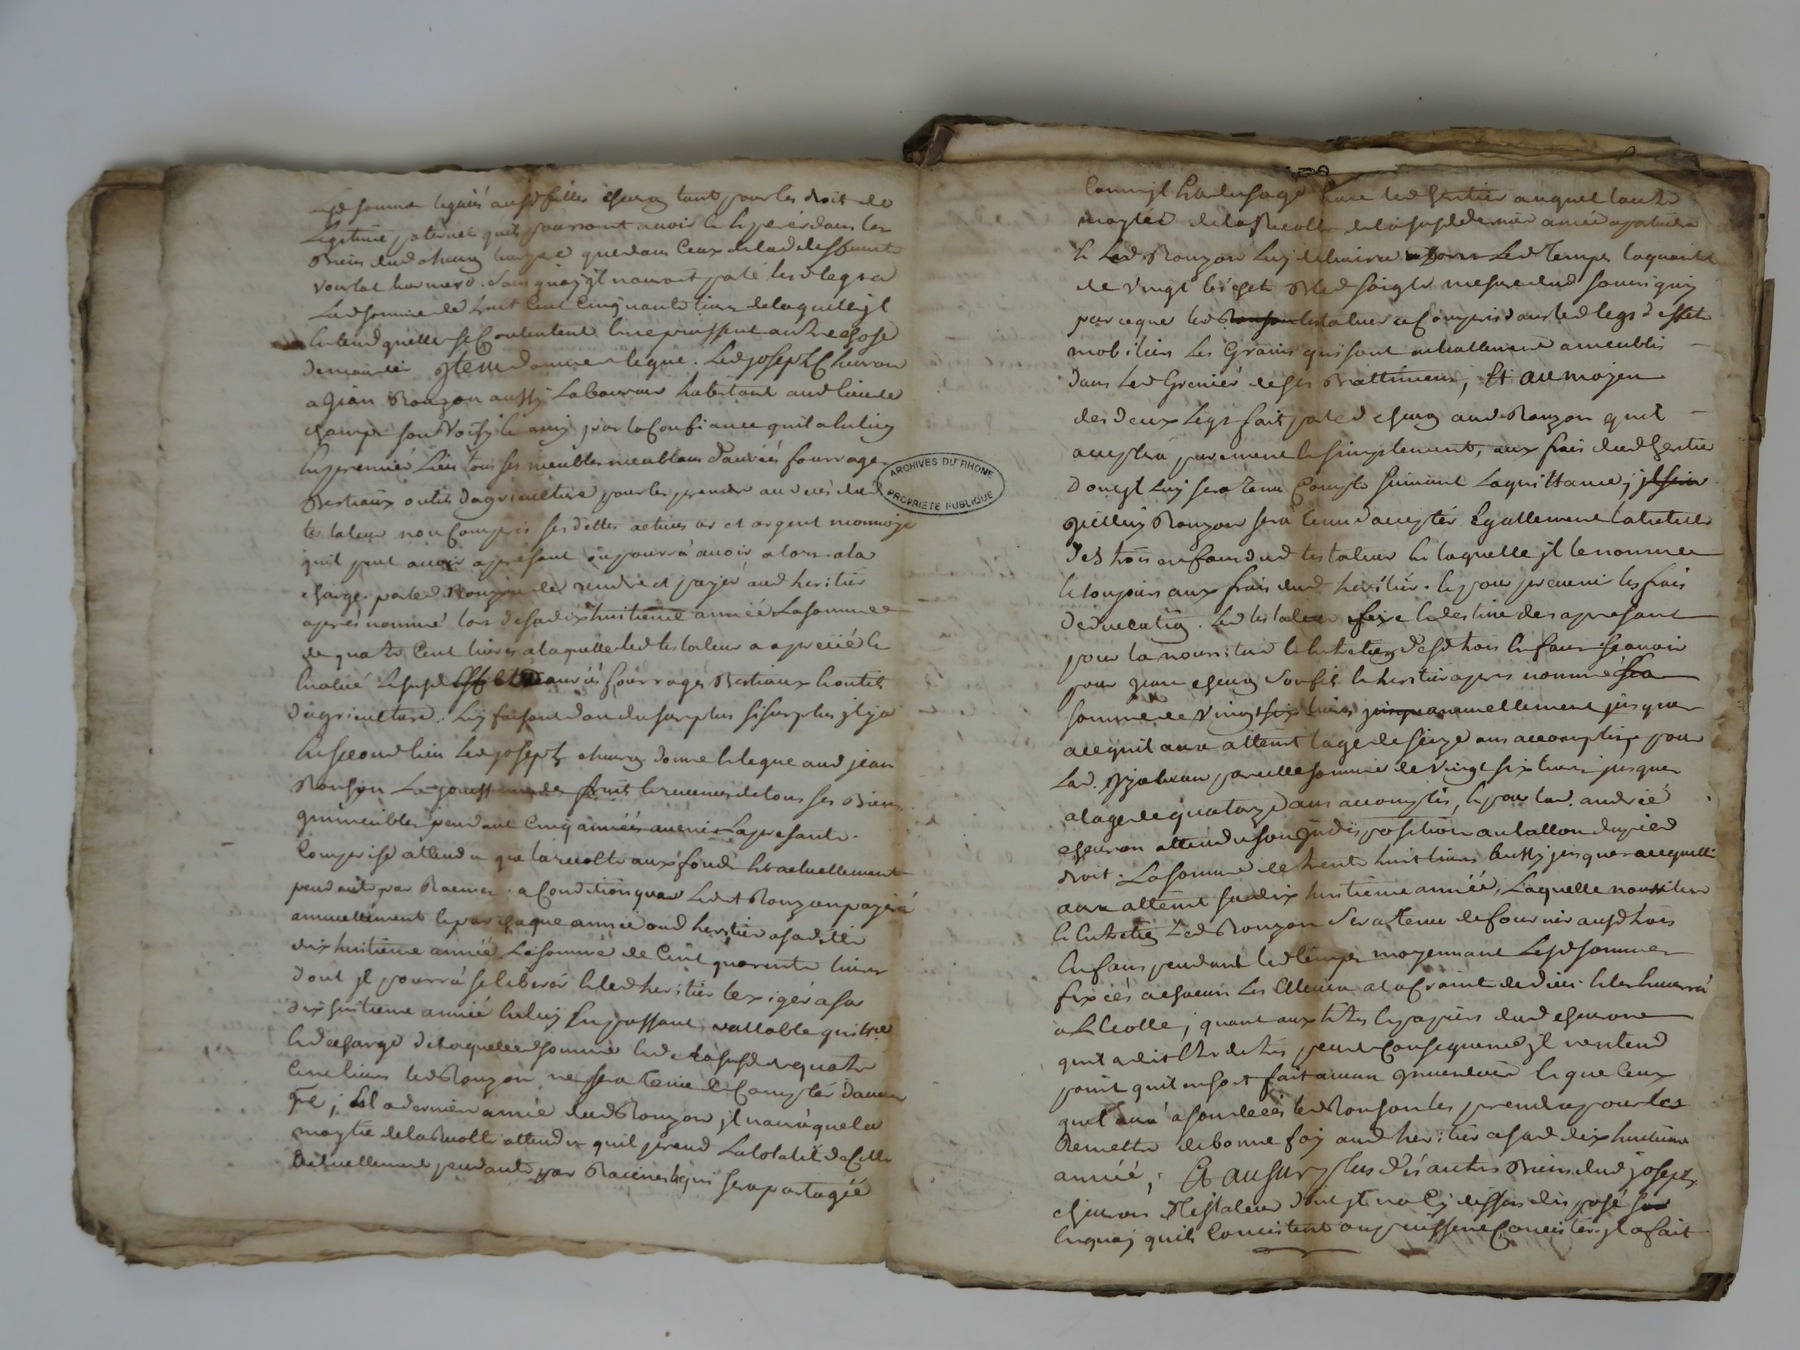 somme leguéé ausd filles chacung tant pour les droit de
Legitime paternel quils pourront avoir et esperer dans les
Biens dud chung que dans Ceux de lad deffunte
La somme de huit Cent Cinquante livres de laquelle jl
Entend quelles se Contentent sans puissent autre chose
demander Jtem donne et legue. Led joseph Cheuron
a jean Ronzon aussy Laboureur habitant aud lieu de
champ son voisin et amy par la Confiance quil a en luy
En premier Lieu tous ses meubles meublans danrés fourrages
Bestiaux outils dagriculture pour les prendre au decés dud
testateur non Compris ses dettes actives or et argent monnoyé
quil peut avoir apresent ou pourra avoir alors a la
charge par led Ronzon de rendre et payer aud heritier
apres nommé lors de sa dixhuitieme année La somme
de quatre Cent livres a laquelle led testateur a apprecié et
Evalué Lesusd danrés fourrages Bestiaux et outils
dagriculture. Luy faisant don du surplus si surplus jl y a
En second lieu Led joseph cheurong donne et legue aud jean
Ronzon La jouissance des fruits et revenus de tous ses Biens
jmmeubles pendant Cinq années avenir La presente
Comprise attendu que la recolte aux fonds Est actuellement
pendante par Racines. a Condition que Ledt Ronzon payera
annuellement et par chaque année aud heritier a sadte
dix huitieme année La somme de Cent quarente livres
dont jl pourra se liberer et led heritier lexiger a sa
dix huitieme année En luy En passant vallable quittce
et decharge de laquelle somme et de Celle susd de quatre
Cent livres led Ronzon ne sera tenu de Compter
; Et la derniere année dud Ronzon jl naura que la
moytié de la Recolte attendu quil prend La totalité de Celle
actuellement pendante par Racines et qui sera partagée
Comme jl Est dusage avec led hertier auquel lautre
moytié de la Recolte de la susd derniere année apartiendra
Et Led Ronzon Luy delivrera Led Temps la quantité
de vingt bichets Bled seigle mesure dud
parce que led testateur a Compris dans led legs deffets
mobiliers Les Grains qui sont actuellement
Dans Led Grenier de ses Battiments, Et au moyen
des deux Legs fait par led chung aud Ronzon quil
acceptera purement et simplement, aux frais dud hertier
Dont jl Luy sera tenu Compte suivant La quittance; jl sera
Jcelluy Ronzon sera tenu daccepter Egallement La tutelle
Des trois enfans dud testateur Et laquelle jl le nomme
Et toujours aux frais dud heritier. Et pour prevenir les frais
Deducation. Led testateur fixe Et destine des apresent
pour la nourriture et Entretien desd trois Enfans scavoir
pour jean cheurong son fils et heritier apres nommé La
somme de vingt six livres annuellement jusques
a ce quil aura atteint lage de seize ans accomplis, pour
Lad. Jzabeau pareille somme de vingt six livres jusques
a lage de quatorze ans accomplis, et pour lad. andréé
cheuron attendu son jndisposition au tallon du pied
droit. La somme de trente huit livres aussy jusques a ce quelle
aura atteint sa dix huitieme année, Laquelle nourriture
et Entretien Led Ronzon Sera Tenu de fournir ausd trois
Enfans pendant led temps moyennant Lesd sommes
fixéés a chacun Les Elever a la Crainte de dieu et les Envoyera
a LEcolle; quant aux titres et papiers dud cheuron
quil a dit Etre de tres peu de Consequence jl nentend
point quil en soit fait aucun jnventaire et que Ceux
quil aura a son decés led Ronzon les prendra pour les
Remettre de bonne foy aud heritier a sad dix huitieme
année; Et au surplus des autres Biens dud joseph
cheuron Testateur dont jl na Cy dessus disposé
En quoy quils Consistent ou puissent Consister jl a fait
ARCHIVES DU RHONE
PROPRIETE PUBLIQUE